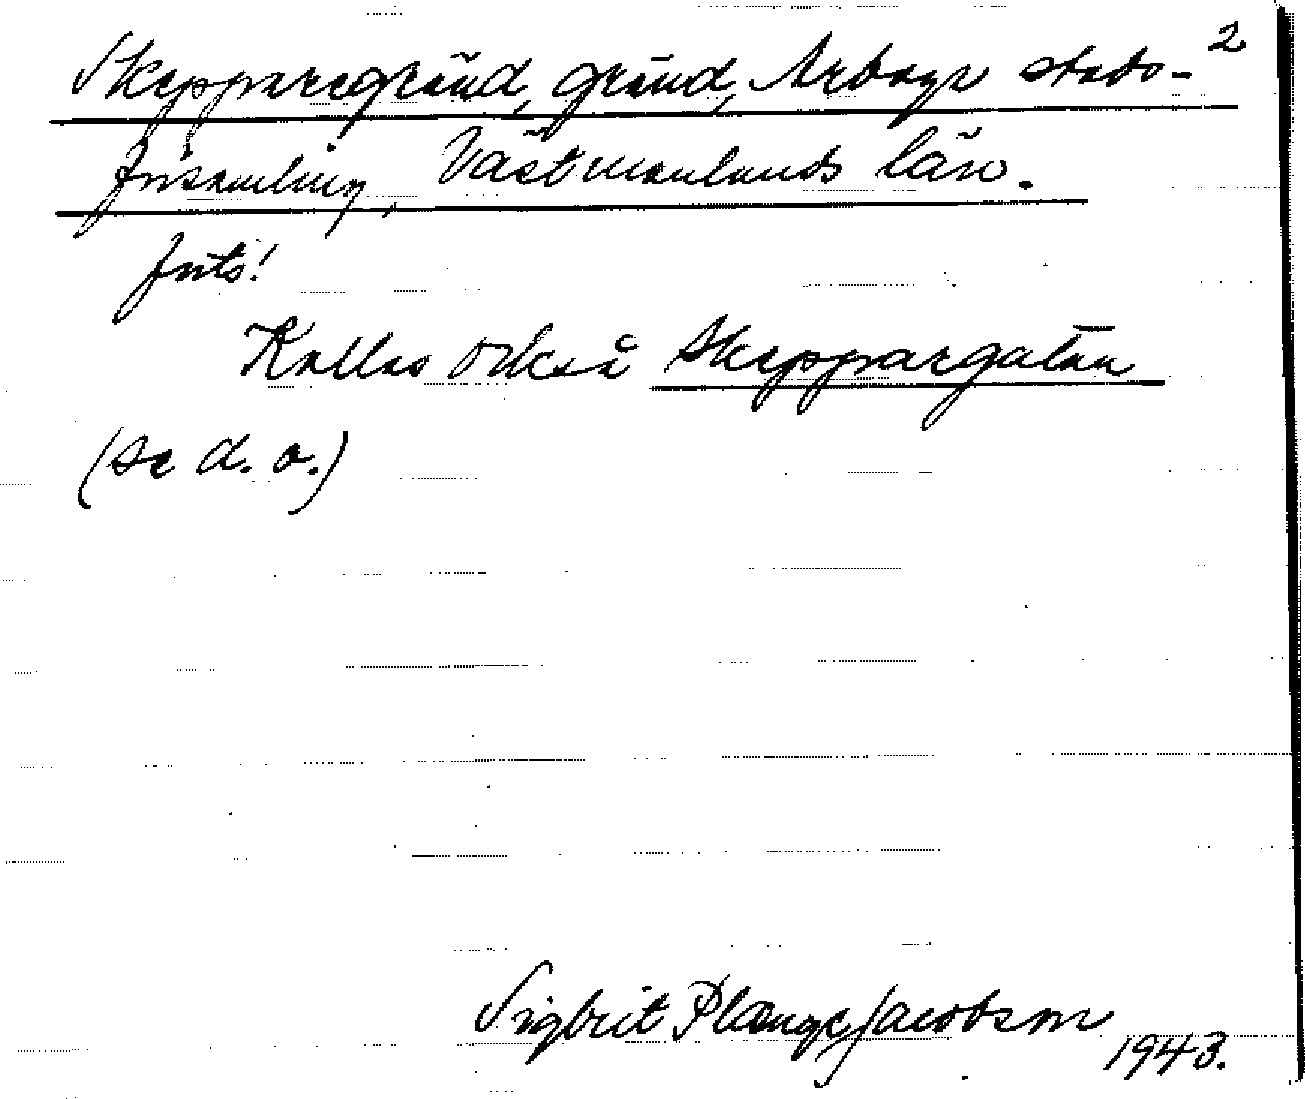 2
Skepparegränd, gränd, Arboga stads-
församling, Västmanlands län.
forts!
Kallas också Skeppargatan
(se d. o.)
Sigbrit Plænge Jacobson
1943.